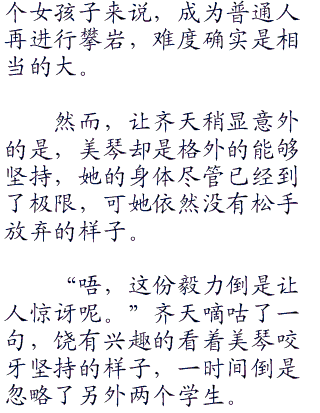 个女孩子来说，成为普通人
再进行攀岩，难度确实是相
当的大。
然而，让齐天稍显意外
的是，美琴却是格外的能够
坚持，她的身体尽管已经到
了极限，可她依然没有松手
放弃的样子。
“唔，这份毅力倒是让
人惊讶呢。”齐天嘀咕了一
句，饶有兴趣的看着美琴咬
牙坚持的样子，一时间倒是
忽略了另外两个学生。